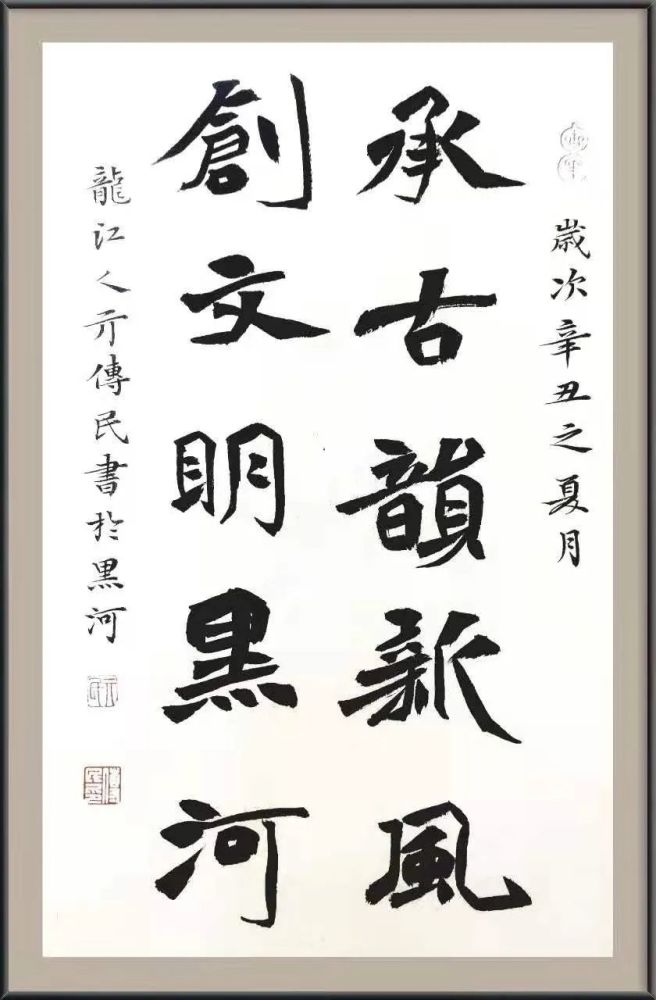 歲次辛丑之夏月
承古韻新風
創文明黑河
龍江人亓傳民書於黑河